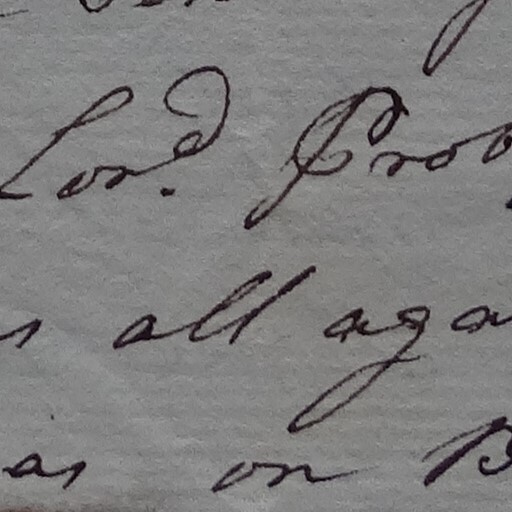 Lord. Prov
s all aga
as on B